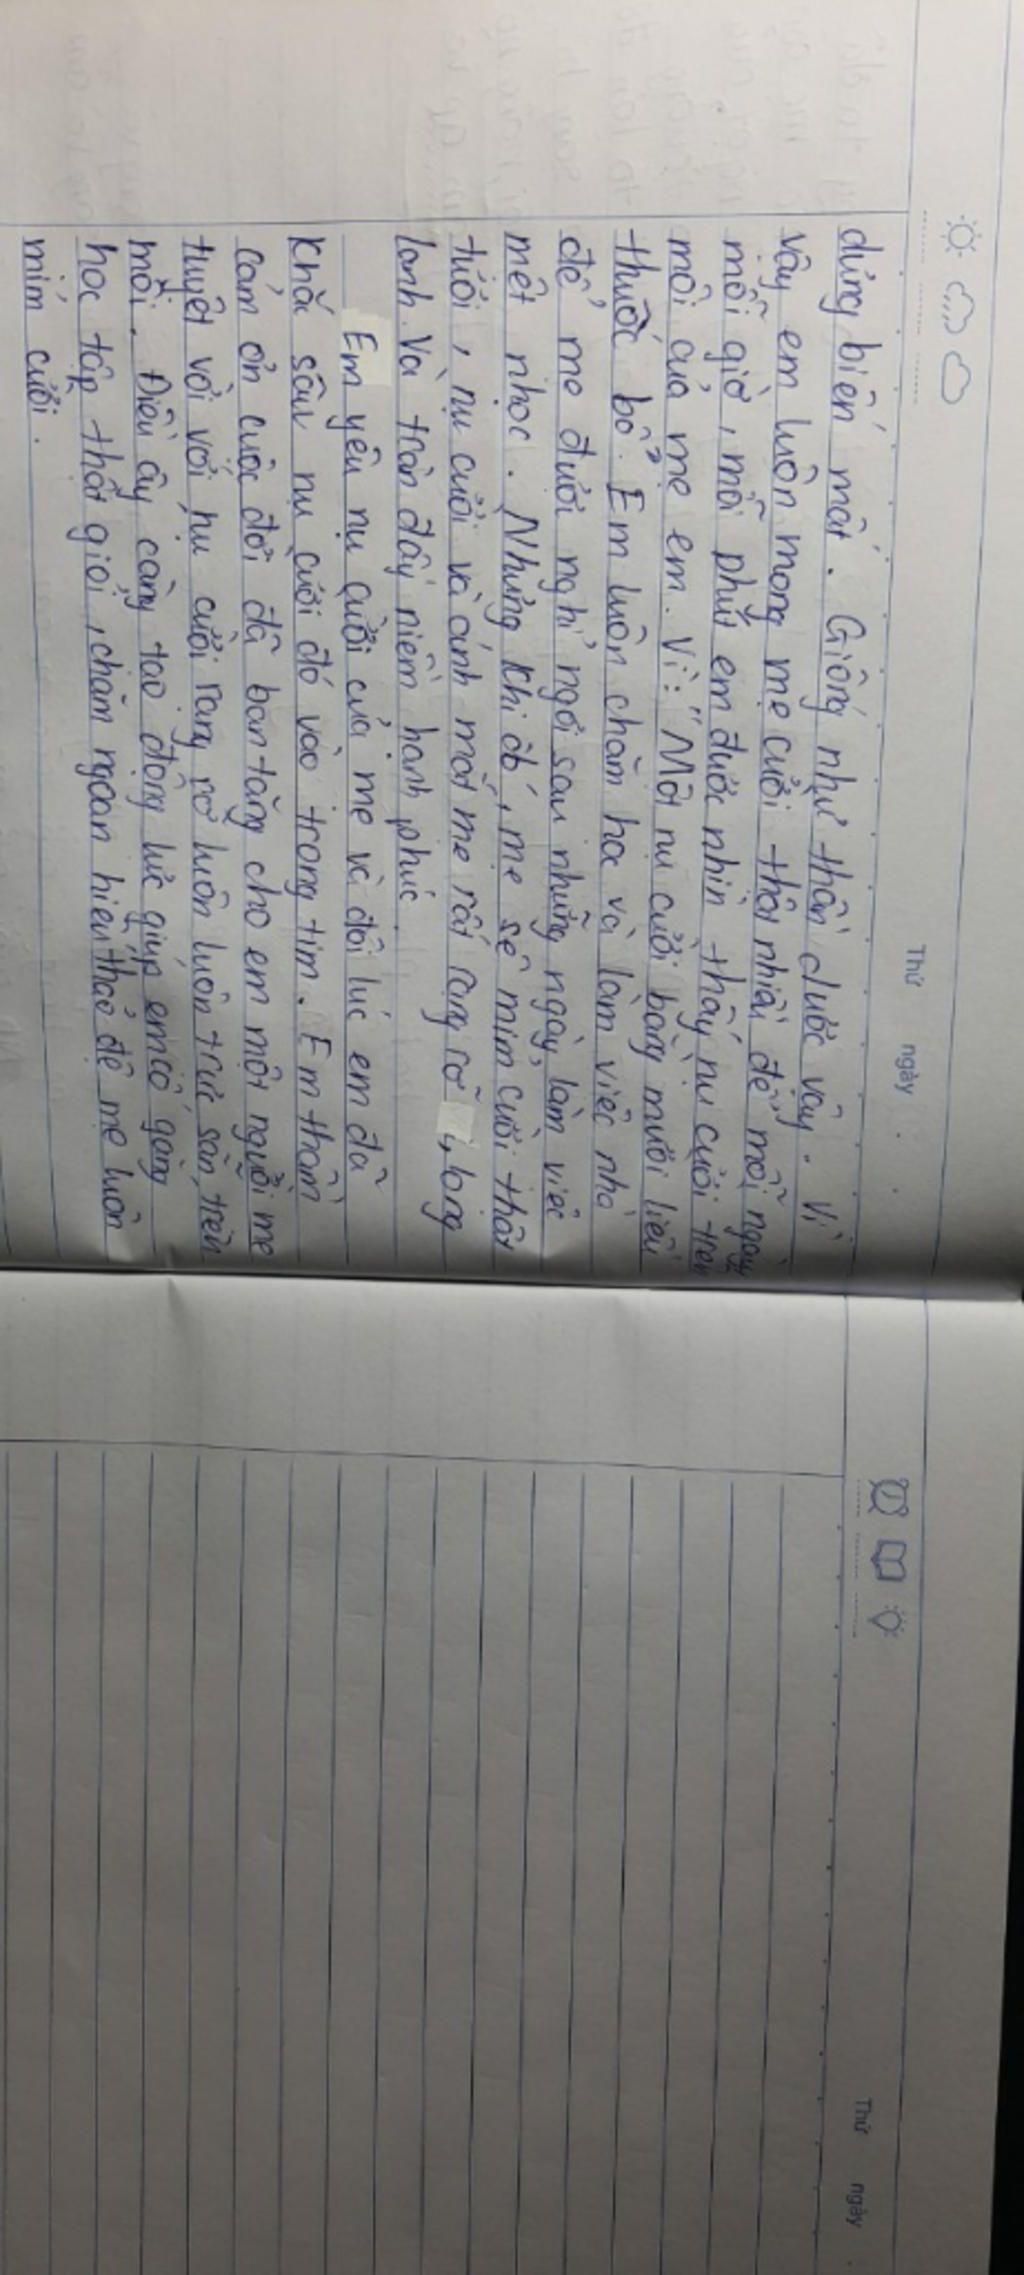 Thứ ngày
dưng biến mất. Giống như thần dược vậy. Vì
vậy em luôn mong mẹ cười thật nhiều để mỗi ngày
mỗi giờ, mỗi phút em được nhìn thấy nụ cười trên
môi của mẹ em. Vì: "Một nụ cười bằng mười liều
thuốc bổ". Em luôn chăm học và làm việc nhà
để mẹ được nghỉ ngơi sau những ngày làm việc
mệt nhọc. Những khi đó, mẹ sẽ mỉm cười thật
tươi, nụ cười và ánh mắt mẹ rất rạng rỡ, long
lanh. Và tràn đầy niềm hạnh phúc
Em yêu nụ cười của mẹ và đôi lúc em đã
khắc sâu nụ cười đó vào trong tim. Em thầm
cảm ơn cuộc đời đã ban tặng cho em một người mẹ
tuyệt vời với nụ cười rạng rỡ luôn luôn trực sẵn trên
môi. Điều ấy càng tạo động lực giúp em cố gắng
học tập thật giỏi, chăm ngoan hiếu thảo để mẹ luôn
mỉm cười.
Thứ ngày